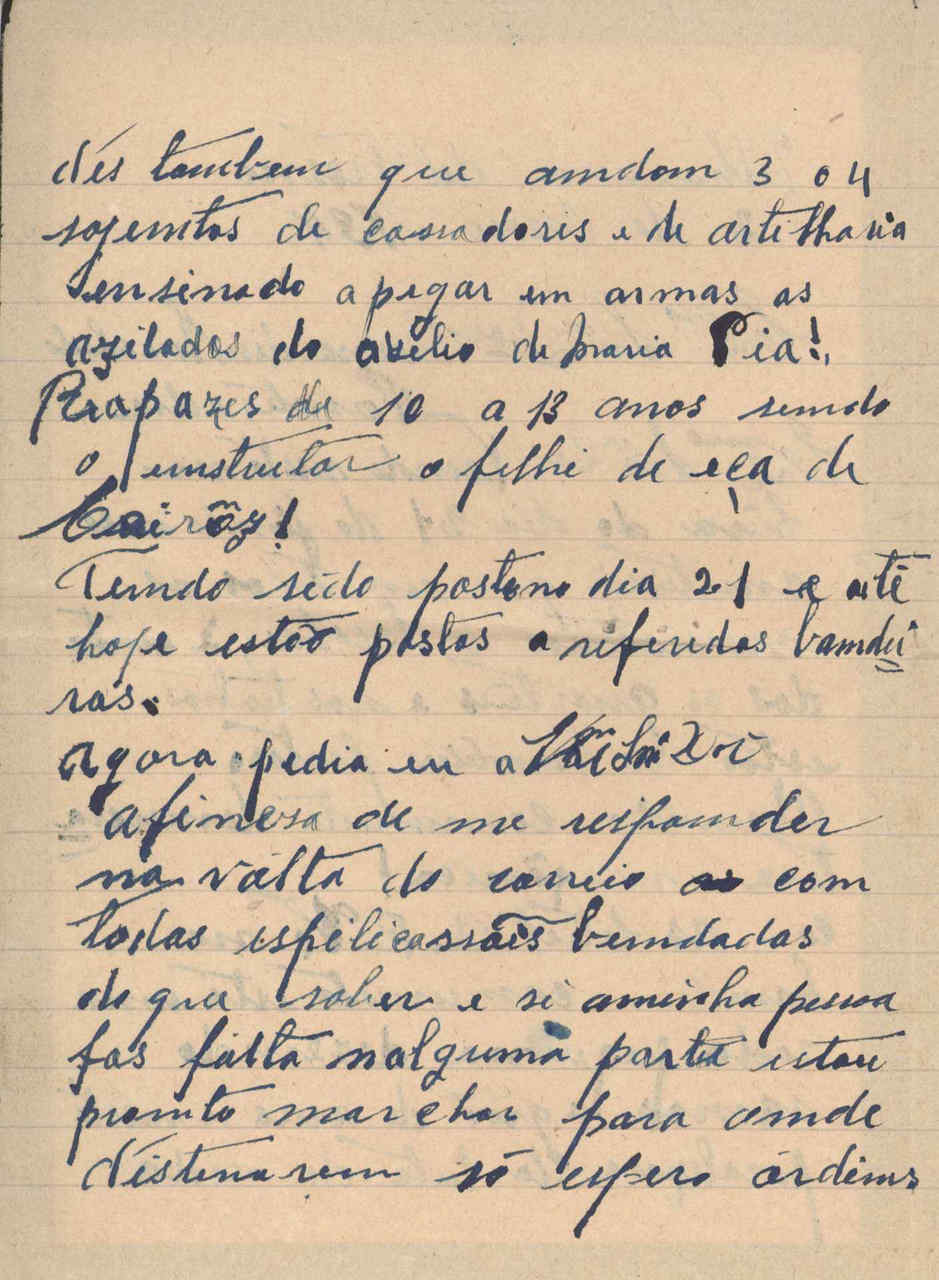 dés tambem que amdom 3 o 4
sojemtos de cassadores e de artelharia
ensinado a pegar em armas as
azilados do azilio de Maria Pia!,
Rapazes de 10 a 13 anos semdo
o emstrutor o filhi de eça de
Cairõz!
Temdo sedo posto no dia 21 e atè
hoje estão postos a referidas bamdei
ras.
agora pedia eu a
afinesa de me respomder
na vólta do correio com
todas espelicassãoes bemdadas
do que saber e si aminha pessoa
fas falta nalguma parte estou
promto marchar para omde
distenarem só espero òrdems